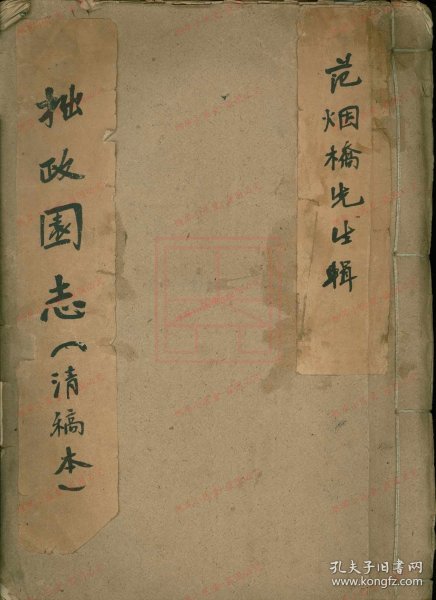 范烟橋先生輯
拙政園志（清稿本）
孔夫子旧书网
www.kongfz.com